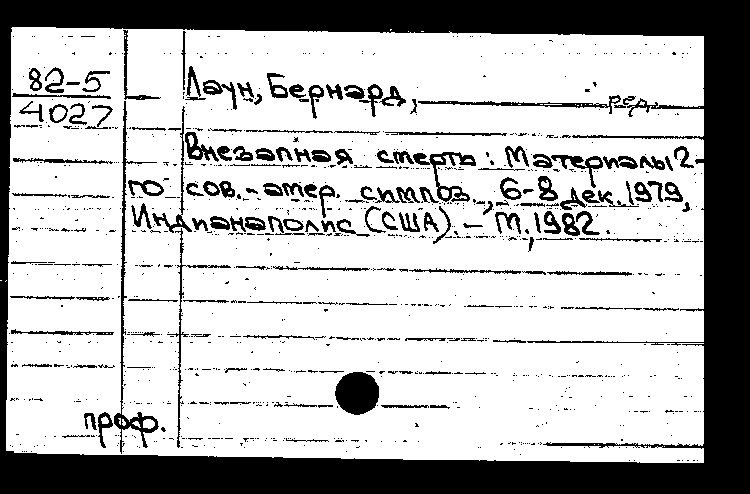 82-5
4027
Лаун, Бернард, ред.
Внезапная смерть: Материалы 2-
го сов.-амер. симпоз., 6-8 дек. 1979,
Индианаполис (США). - М., 1982.
проф.